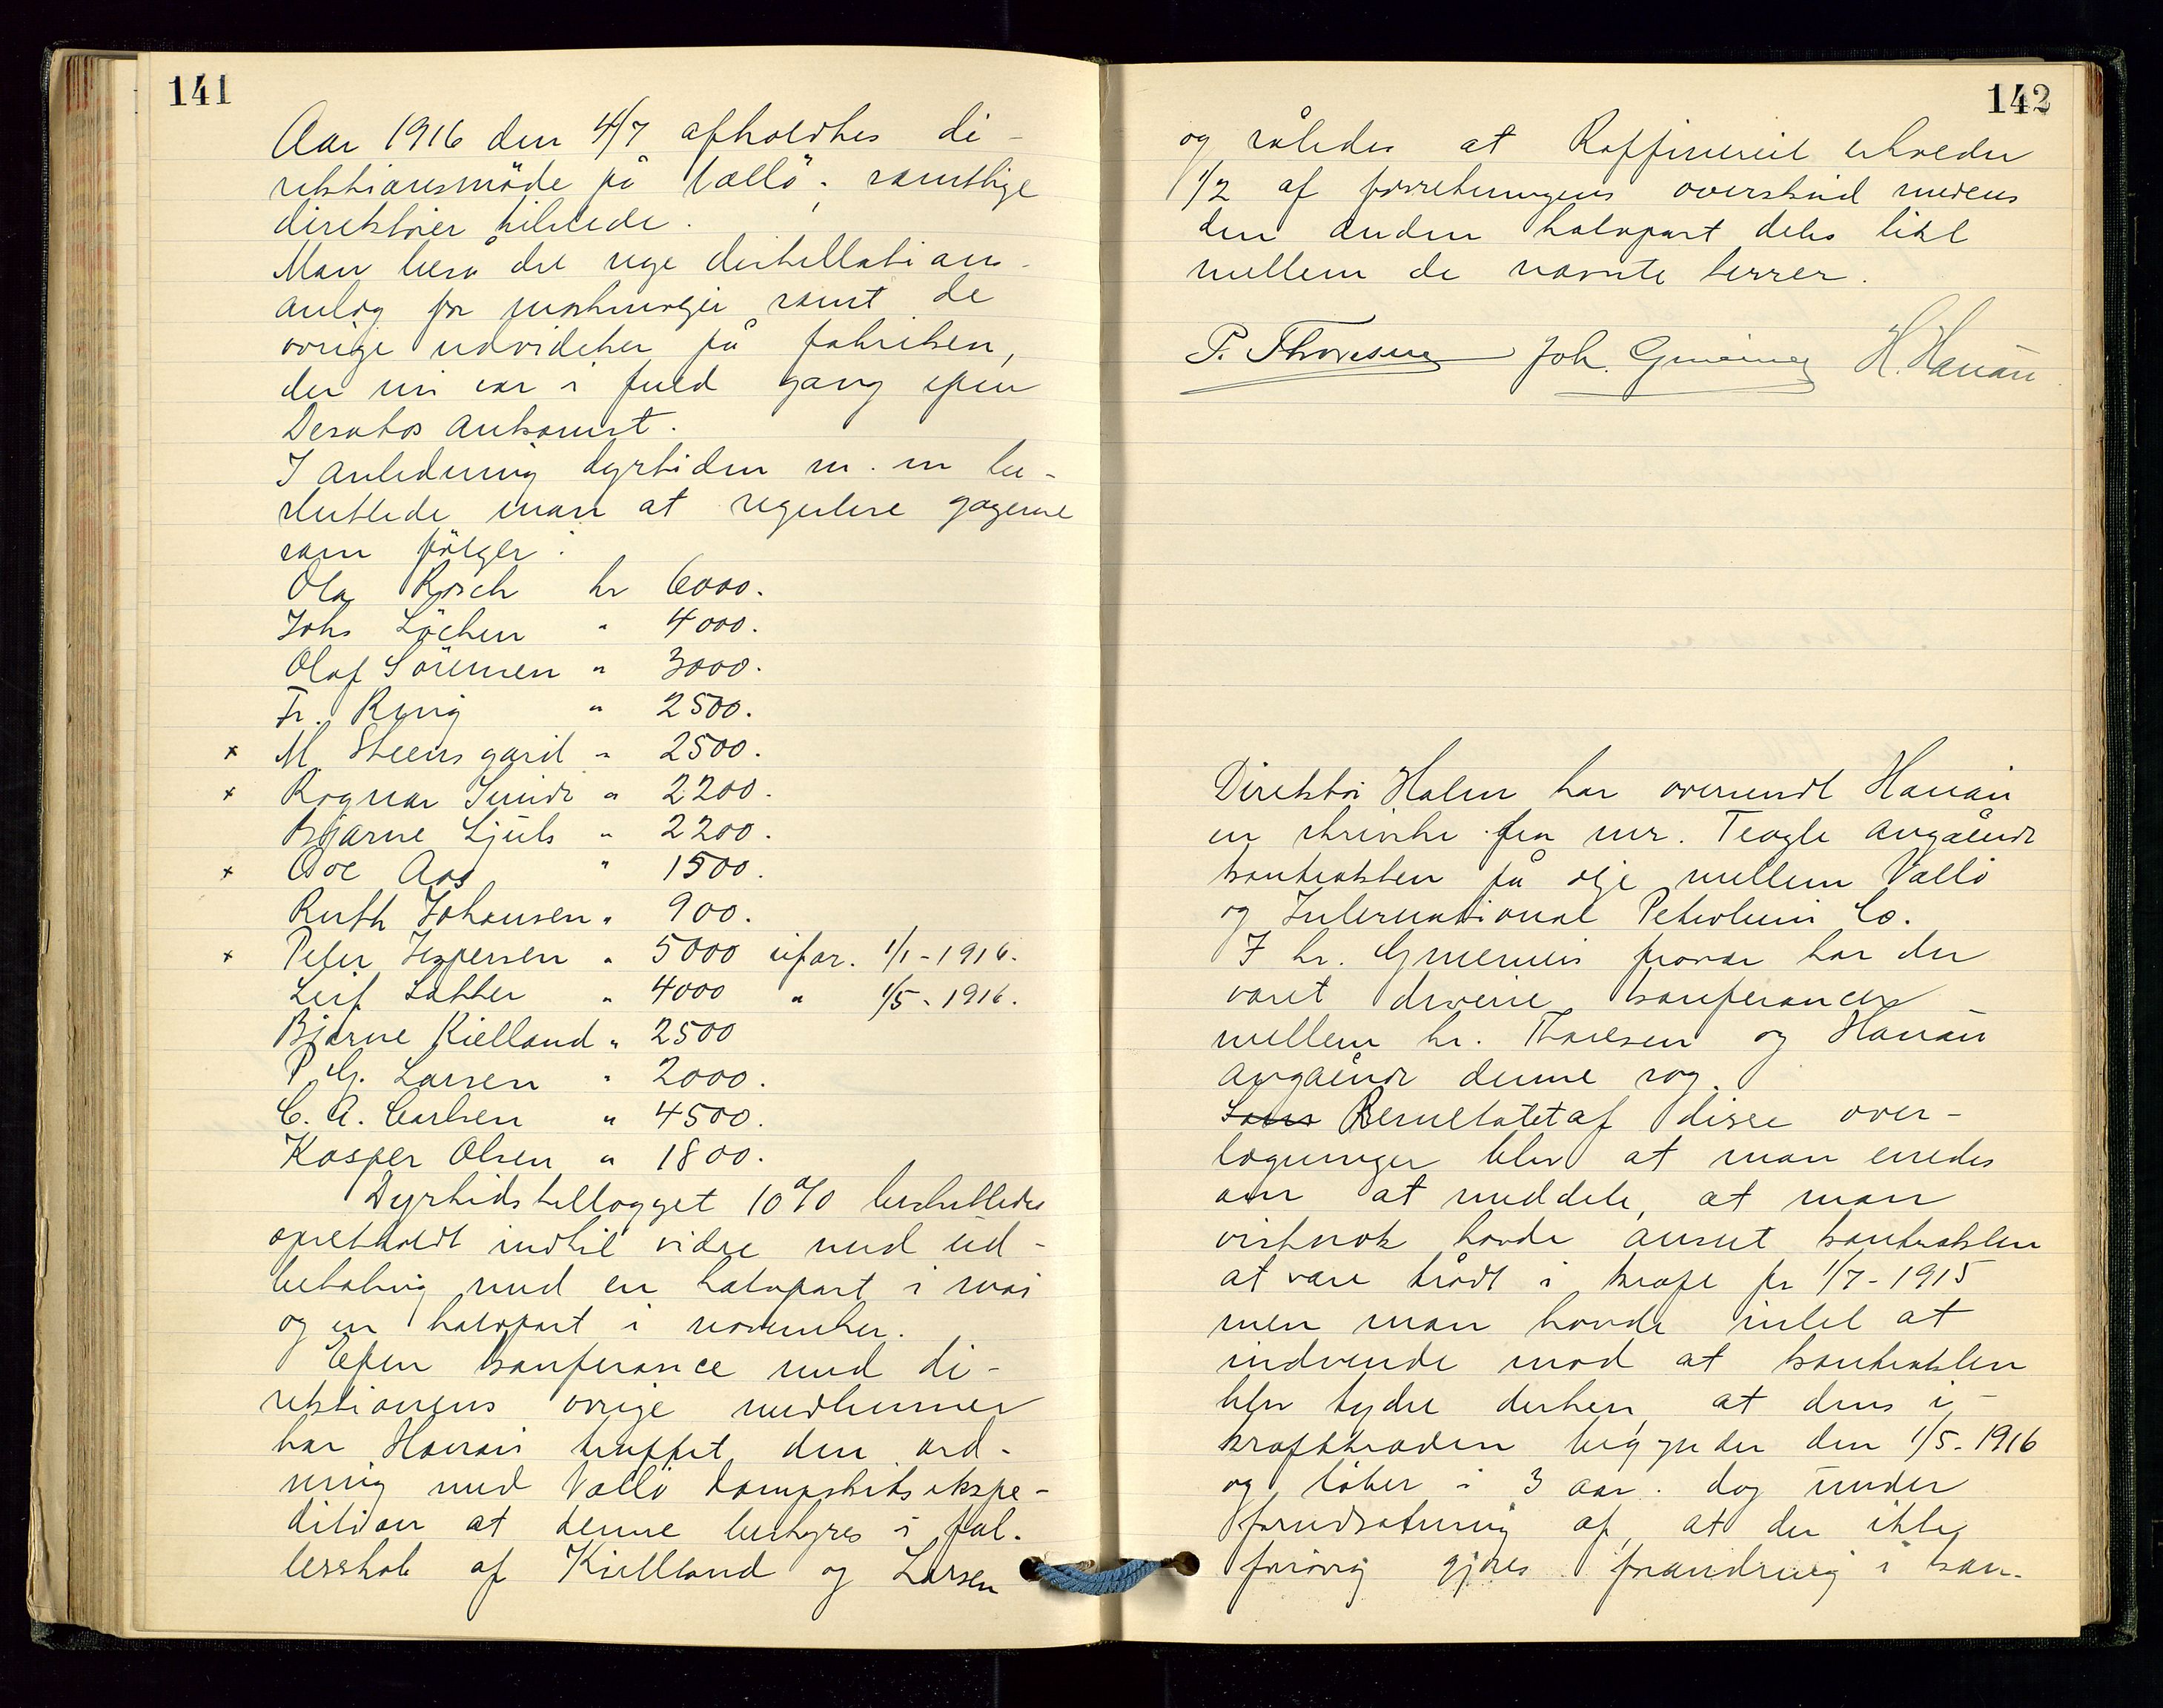 141
Aar 1916 den 4/7 afholdtes di-
rektionsmöde på Vallö; samtlige
direktører tilstede.
Man beså det nye destillations-
anlæg for maskinoljer samt de
øvrige udvidelser på fabriken,
der nu var i fuld gang efter
Desatos Ankomst.
I anledning dyrtiden m.m be-
sluttede man at regulere gagerne
som følger:
Ola Rosch kr 6000.
Johs Löchen " 4000.
Olaf Sörensen " 3000.
Fr. Ring " 2500.
x M. Steensgard " 2500.
x Ragnar Sunde " 2200.
Bjarne Ljuls " 2200.
x Ove Aas " 1500.
Ruth Johansen " 900.
x Peter Jespersen " 5000 ifør. 1/1-1916.
Leif Løkker " 4000 " 1/5-1916.
Bjarne Kielland " 2500
P. G. Larsen " 2000.
C. A. Carlsen " 4500.
Kasper Olsen " 1800.
Dyrtidstillægget 10% besluttedes
opretholdt indtil vidre med ud-
betaling med en halvpart i mai
og en halvpart i november.
Efter konferance med di-
rektionens øvrige medlemmer
har Hanan truffet den ord-
ning med Vallö Dampskibsekspe-
dition at denne bestyres i fæl-
lesskab af Kielland og Larsen
142
og således at Raffineriet erholder
1/2 af forretningens overskud medens
den anden halvpart deles likt
mellem de nævnte herrer.
P. Thoresen Joh. H. Hanan
Direktör Holm har oversendt Hanan
en skrivelse fra mr. Teagle angående
kontrakten på olje mellem Vallö
og International Petroleum Co.
I hr. fravær har der
været diverse konferancer
mellem hr. Thoresen og Hanan
angående denne sag.
Som Resultatet af disse over-
lægninger blev at man enedes
om at meddele, at man
vistnok havde anset kontrakten
at være trådt i kraft pr 1/7-1915
men man havde intet at
indvende mod at kontrakten
blev tydet derhen, at dens i-
krafttræden begynder den 1/5-1916
og løber i 3 aar. dog under
forudsætning af, at der ikke
forøvrig gjøres forandring i kon-